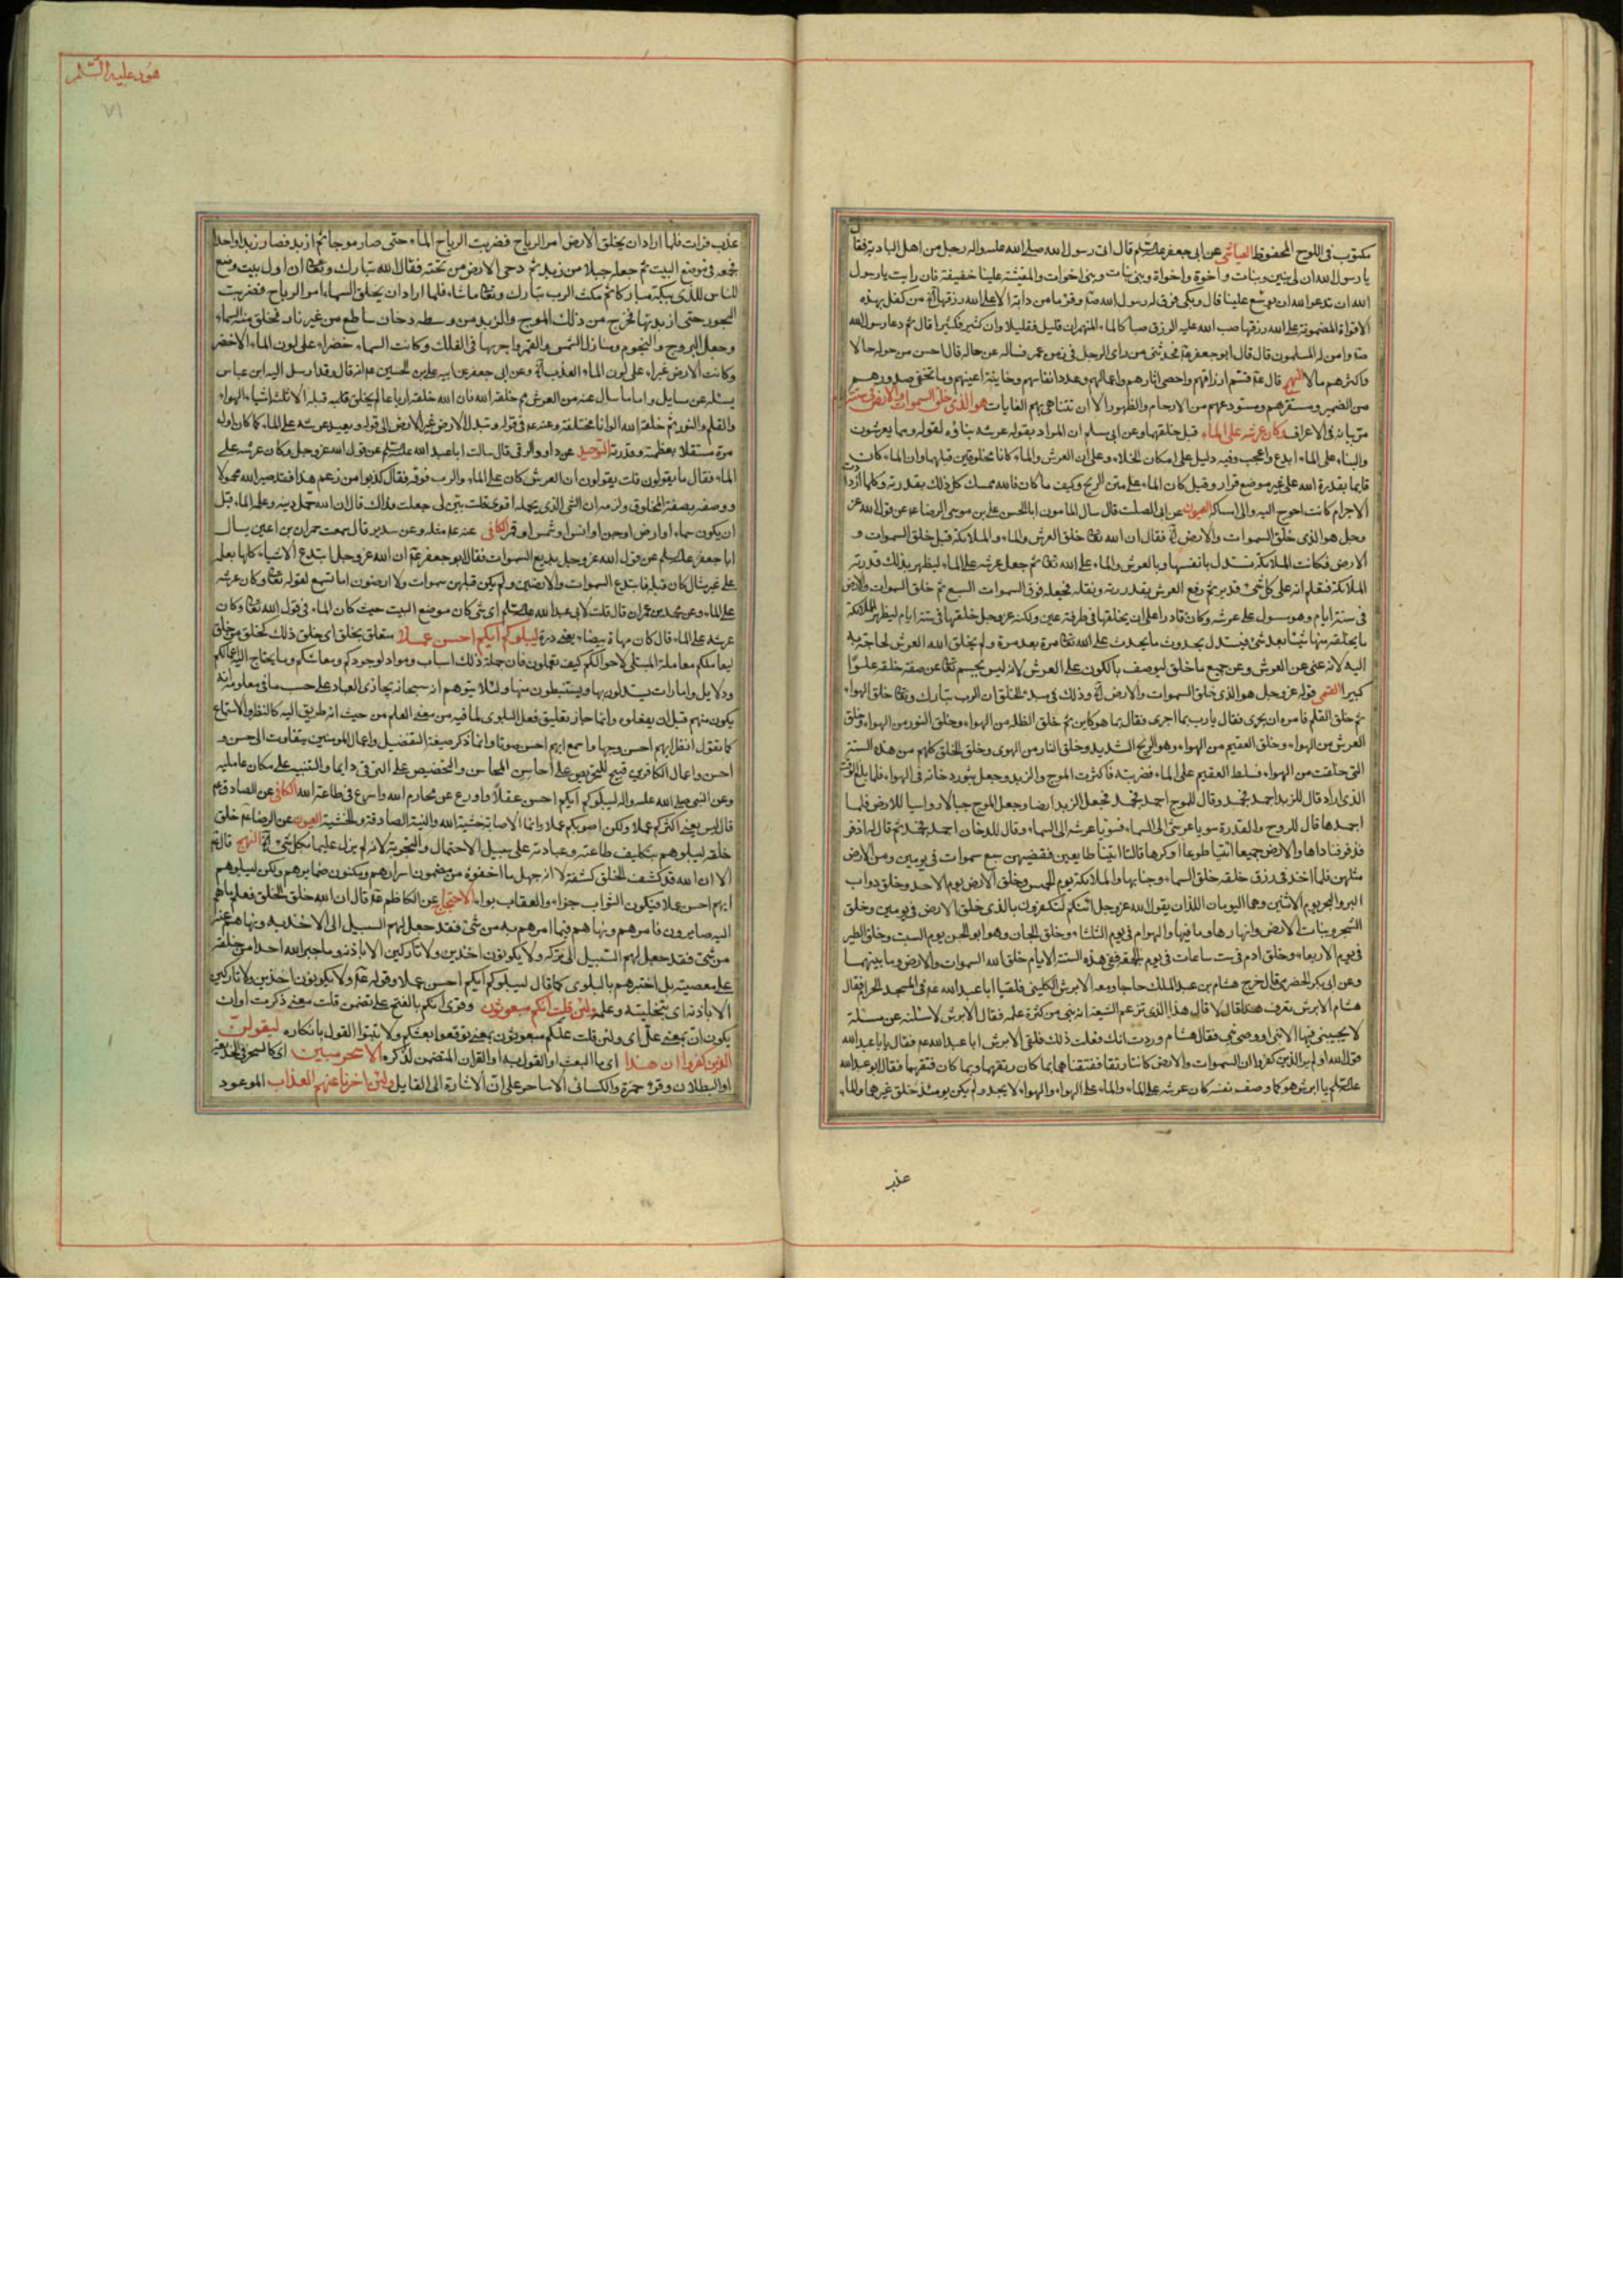 مكتوب في اللوح المحفوظ العياشي عن ابي جعفر عليه السلم قال اتى رسول الله صلى الله عليه واله رجل من اهل البادية فقال
يا رسول الله ان لي بنين وبنات واخوة واخوات وبني بنين وبني بنات وبني اخوة وبني اخوات والمعيشة علينا خفيفة فان رايت يا رسول
الله ان تدعو الله ان يوسع علينا قال وبكى فرق له رسول الله صلى وقرء ما من دابة الا على الله رزقها الآية من كفل بهذه
الافواه المضمونة على الله رزقها صب الله عليه الرزق صبا كالماء المنهمر ان قليل فقليلا وان كثير فكثيرا قال ثم دعا رسول الله
وامن له المسلمون قال قال ابو جعفر عم فحدثني من راى الرجل في زمن عمر فساله عن حاله فقال احسن من حوله حالا
واكثرهم مالا النهج قال عم قسم ارزاقهم واحصى اثارهم واعمالهم وعدد انفاسهم وخاينة اعينهم وما تخفي صدورهم
من الضمير ومستقرهم ومستودعهم من الارحام والظهور الا ان تتناهى بهم الغايات هو الذي خلق السموات والارض في ستة
مر بيانه في الاعراف وكان عرشه على الماء قبل خلقهما وعن ابي مسلم ان المراد بقوله عرشه بناؤه لقوله ومما يعرشون
والبناء على الماء ابدع واعجب وفيه دليل على امكان الخلاء وعلى ان العرش والماء كانا مخلوقين قبلهما وان الماء كان
قايما بقدرة الله على غير موضع قرار وقيل كان الماء على متن الريح وكيف ما كان فالله ممسك كل ذلك بقدرته وكلما ازدادت
الاجرام كانت احوج اليه والى امساكه العيون عن ابي الصلت قال سال المامون ابا الحسن علي بن موسى الرضا عم عن قول الله عز
وجل هو الذي خلق السموات والارض الآية فقال ان الله تعالى خلق العرش والماء والملائكة قبل خلق السموات و
الارض فكانت الملائكة تستدل بانفسها وبالعرش والماء على الله تعالى ثم جعل عرشه على الماء ليظهر بذلك قدرته
الملائكة فتعلم انه على كل شيء قدير ثم رفع العرش بقدرته ونقله فجعله فوق السموات السبع ثم خلق السموات والارض
في ستة ايام وهو مستول على عرشه وكان قادرا على ان يخلقها في طرفة عين ولكنه عز وجل خلقها في ستة ايام ليظهر للملائكة
ما يخلقه منها شيئا بعد شيء فيستدل بحدوث ما يحدث على الله تعالى مرة بعد مرة ولم يخلق الله العرش لحاجة به
اليه لانه غني عن العرش وعن جميع ما خلق لا يوصف بالكون على العرش لانه ليس بجسم تعالى عن صفة خلقه علوا
كبيرا القمي قوله عز وجل هو الذي خلق السموات والارض الآية وذلك في مبدء الخلق ان الرب تبارك وتعالى خلق الهواء
ثم خلق القلم فامره ان يجري فقال يا رب بما اجري فقال بما هو كاين ثم خلق الظلمة من الهواء وخلق النور من الهواء وخلق
العرش من الهواء وخلق العقيم من الهواء وهو الريح الشديد وخلق النار من الهوى وخلق الخلق كلهم من هذه الستة
التي خلقت من الهواء فسلط العقيم على الماء فضربته فاكثرت الموج والزبد وجعل يثور دخانه في الهواء فلما بلغ الوقت
الذي اراد قال للزبد اجمد فجمد وقال للموج اجمد فجمد فجعل الزبد ارضا وجعل الموج جبالا رواسيا للارض فلما
اجمدها قال للروح والقدرة سويا عرشي الى السماء فسويا عرشه الى السماء وقال للدخان اجمد فجمد ثم قال له ازفر
فزفر فناداها والارض جميعا ائتيا طوعا او كرها قالتا اتينا طايعين فقضيهن سبع سموات في يومين ومن الارض
مثلهن فلما اخذ في رزق خلقه خلق السماء وجناتها والملائكة يوم الخميس وخلق الارض يوم الاحد وخلق دواب
البر والبحر يوم الاثنين وهما اليومان اللذان يقول الله عز وجل ائنكم لتكفرون بالذي خلق الارض في يومين وخلق
الشجر ونبات الارض وانهارها وما فيها والهوام في يوم الثلثاء وخلق الجان وهو ابو الجن يوم السبت وخلق الطير
في يوم الاربعاء وخلق ادم في ست ساعات في يوم الجمعة ففي هذه الستة الايام خلق الله السموات والارض وما بينهما
وعن ابي بكر الحضرمي قال خرج هشام بن عبد الملك حاجا ومعه الابرش الكلبي فلقيا ابا عبد الله عم في المسجد الحرام فقال
هشام الابرش تعرف هذا قال لا قال هذا الذي تزعم الشيعة انه نبي من كثرة علمه فقال الابرش لاسئلنه عن مسئلة
لا يجيبني فيها الا نبي او وصي نبي فقال هشام وددت انك فعلت ذلك فلقي الابرش ابا عبد الله عم فقال يا ابا عبد الله
قول الله اولم ير الذين كفروا ان السموات والارض كانتا رتقا ففتقناهما بما كان رتقهما وبما كان فتقهما فقال ابو عبد الله
عليه السلم يا ابرش هو كما وصف نفسه كان عرشه على الماء والماء على الهواء والهواء لا يحد ولم يكن يومئذ خلق غيرهما والماء
عذب
هود عليه السلم
٧١
عذب فرات فلما اراد ان يخلق الارض امر الرياح فضربت الرياح الماء حتى صار موجا ثم ازبد فصار زبدا واحدا
فجمعه في موضع البيت ثم جعله جبلا من زبد ثم دحى الارض من تحته فقال الله تبارك وتعالى ان اول بيت وضع
للناس للذي ببكة مباركا ثم مكث الرب تبارك وتعالى ما شاء فلما اراد ان يخلق السماء امر الرياح فضربت
البحور حتى ازبدتها فخرج من ذلك الموج والزبد من وسطه دخان ساطع من غير نار فخلق منه السماء
وجعل البروج والنجوم ومنازل الشمس والقمر واجريها في الفلك وكانت السماء خضراء على لون الماء الاخضر
وكانت الارض غبراء على لون الماء العذب الآية وعن ابي جعفر عن ابيه علي بن الحسين عم انه قال وقد ارسل اليه ابن عباس
يسئله عن مسايل واما ما سال عنه من العرش مم خلقه الله فان الله خلقه ارباعا لم يخلق قبله الا ثلثة اشياء الهواء
والقلم والنور ثم خلقه الله الوانا مختلفة وعنه عم في قوله وتبدل الارض غير الارض الى قوله ويعيد عرشه على الماء كما كان اول
مرة مستقلا بعظمته وقدرته التوحيد عن داود الرقي قال سالت ابا عبد الله عليه السلم عن قول الله عز وجل وكان عرشه على
الماء فقال ما يقولون قلت يقولون ان العرش كان على الماء والرب فوقه فقال كذبوا من زعم هذا فقد صير الله محمولا
ووصفه بصفة المخلوق ولزمه ان الشي الذي يحمله اقوى قلت بين لي جعلت فداك قال ان الله حمل دينه وعلمه الماء قبل
ان يكون سماء او ارض او جن او انس او شمس او قمر الكافي عنه عم مثله وعن سدير قال سمعت حمران بن اعين يسال
ابا جعفر عليه السلم عن قول الله عز وجل بديع السموات فقال ابو جعفر عم ان الله عز وجل ابتدع الاشياء كلها بعلمه
على غير مثال كان قبله فابتدع السموات والارضين ولم يكن قبلهن سموات ولا ارضون اما تسمع لقوله تعالى وكان عرشه
على الماء وعن محمد بن عمران قال قلت لابي عبد الله عليه السلم اي شي كان موضع البيت حيث كان الماء في قول الله تعالى وكان
عرشه على الماء قال كان مهاة بيضاء يعني درة ليبلوكم ايكم احسن عملا متعلق بخلق اي خلق ذلك كخلق من خلق
ليعاملكم معاملة المبتلي لاحوالكم كيف تعملون فان جملة ذلك اسباب ومواد لوجودكم ومعاشكم وما يحتاج اليه اعمالكم
ودلايل وامارات يستدلون بها ويستنبطون منها ولئلا يتوهم انه سبحانه يجازي العباد على حسب ما في معلومه انه
يكون منهم قبل ان يفعلوه وانما جاز تعليق فعل البلوى لما فيه من معنى العلم من حيث انه طريق اليه كالنظر والاستماع
كما تقول انظر ايهم احسن وجها واسمع ايهم احسن صوتا وانما ذكر صيغة التفضيل واعمال المومنين يتفاوت الى حسن و
احسن واعمال الكافرين قبيح للتحريص على احاسن المحاسن والتحضيض على الترقي دايما والتنبيه على مكان عامليه
وعن النبي صلى الله عليه واله ليبلوكم ايكم احسن عقلا واورع عن محارم الله واسرع في طاعة الله الكافي عن الصادق عم
قال ليس يعني اكثركم عملا ولكن اصوبكم عملا وانما الاصابة خشية الله والنية الصادقة والخشية العيون عن الرضا عم خلق
خلقه ليبلوهم بتكليف طاعته وعبادته على سبيل الاحتمال والتجربة لانه لم يزل عليما بكل شي الآية النهج قال عم
الا ان الله قد كشف الخلق كشفة لا انه جهل ما اخفوه من مضمون اسرارهم ومكنون ضمايرهم ولكن ليبلوهم
ايهم احسن عملا فيكون الثواب جزاء والعقاب بواء الاحتجاج عن الكاظم عم قال ان الله خلق الخلق فعلم ما هم
اليه صايرون فامرهم ونهاهم فيما امرهم به من شي فقد جعل لهم السبيل الى الاخذ به وما نهاهم عنه
من شي فقد جعل لهم السبيل الى تركه ولا يكونون اخذين ولا تاركين الا باذنه وما جبر الله احدا من خلقه
على معصيته بل اختبرهم بالبلوى كما قال ليبلوكم ايكم احسن عملا وقوله عم ولا يكونون اخذين ولا تاركين
الا باذنه اي بتخليته وعلمه ولئن قلت انكم مبعوثون وقرى انكم بالفتح على تضمن قلت معنى ذكرت او ان
يكون ان بمعنى عل اي ولئن قلت علكم مبعوثون بمعنى توقعوا بعثكم ولا تبتوا القول بانكاره ليقولن
الذين كفروا ان هذا اي ما البعث او القول به او القران المتضمن لذكره الا سحر مبين اي كالسحر في الخديعة
او البطلان وقرء حمزة والكسائي الا ساحر على ان الاشارة الى القايل ولئن اخرنا عنهم العذاب الموعود